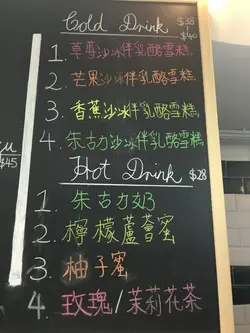 Cold Drink $38
$40
1. 草莓沙冰伴乳酪雪糕
2. 芒果沙冰伴乳酪雪糕
3. 香蕉沙冰伴乳酪雪糕
4. 朱古力沙冰伴乳酪雪糕
Hot Drink $28
1. 朱古力奶
2. 檸檬蘆薈蜜
3. 柚子蜜
4. 玫瑰/茉莉花茶
$45